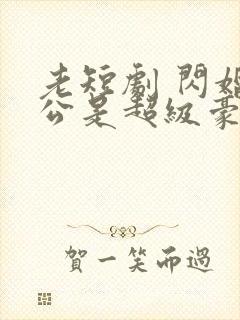 老短劇 閃婚
公是超級豪
賀一笑而過